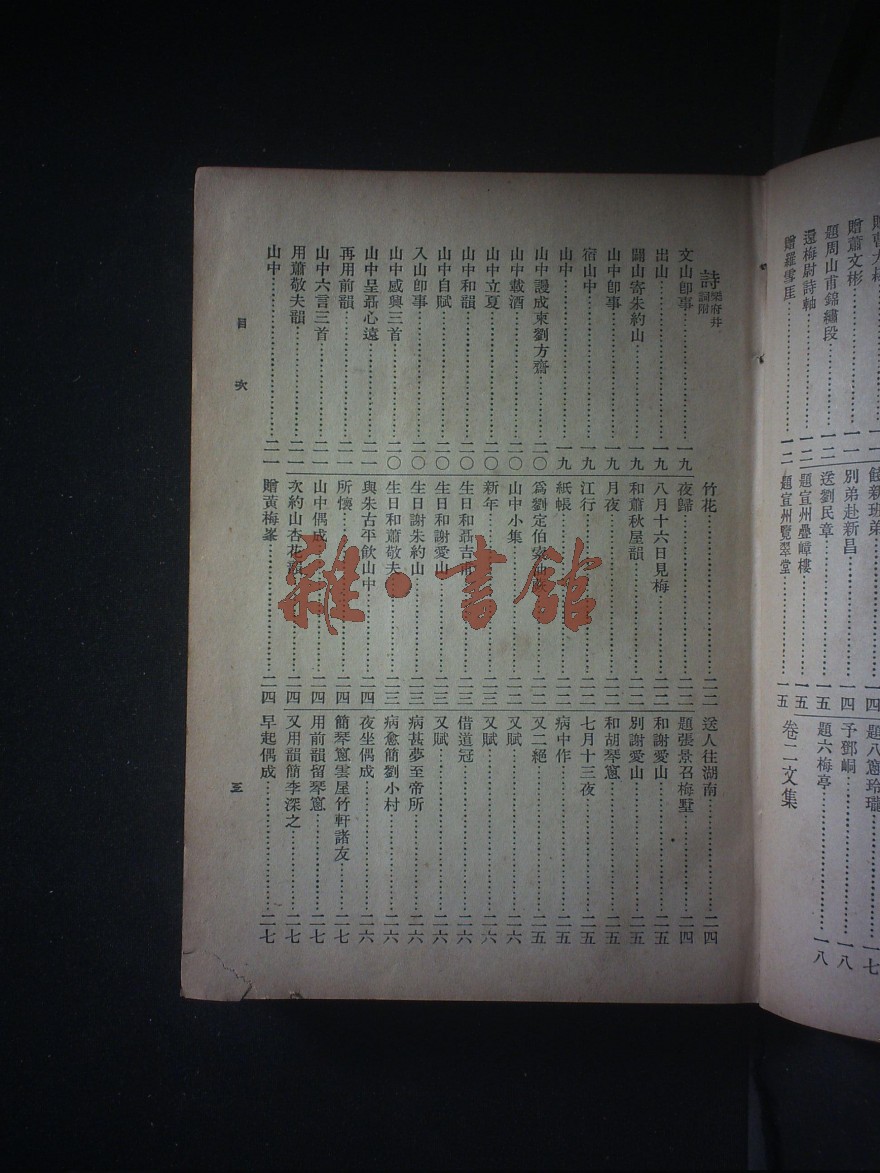 贈蕭文彬
題周山甫錦繡段
還梅尉詩軸……一二
贈羅雪厓……一二
餞新班弟……一四
別弟赴新昌……一四
送劉民章……一五
題宣州疊嶂樓……一五
題宣州覽翠堂……一五
題八窻玲瓏……一七
予鄧峒……一八
題六梅亭……一八
卷二文集
詩 樂府幷詞附
文山卽事……一九
出山……一九
闢山寄朱約山……一九
山中卽事……一九
宿山中……一九
山中……一九
山中謾成柬劉方齋……二〇
山中載酒……二〇
山中立夏……二〇
山中自賦……二〇
山中和韻……二〇
入山卽事……二〇
山中感興三首……二〇
山中呈聶心遠……二一
再用前韻……二一
山中六言三首……二一
用蕭敬夫韻……二一
山中……二一
竹花……二二
夜歸……二二
八月十六日見梅……二二
和蕭秋屋韻……二二
月夜……二二
江行……二二
紙帳……二二
爲劉定伯索油蔌……二二
山中小集……二三
新年……二三
生日和聶吉甫……二三
生日和謝愛山……二三
生日謝朱約山……二三
生日和蕭敬夫……二三
與朱古平飲山中……二四
所懷……二四
山中偶成……二四
次約山杏花韻……二四
贈黃梅峯……二四
送人往湖南……二四
題張景召梅墅……二四
和謝愛山……二五
別謝愛山……二五
和胡琴窻……二五
七月十三夜……二五
病中作……二五
又二絕……二五
又賦……二六
又賦……二六
借道冠……二六
又賦……二六
病甚夢至帝所……二六
病愈簡劉小村……二六
夜坐偶成……二六
簡琴窻雲屋竹軒諸友……二七
用前韻留琴窻……二七
又用韻簡李深之……二七
早起偶成……二七
目次
三
雜·書館